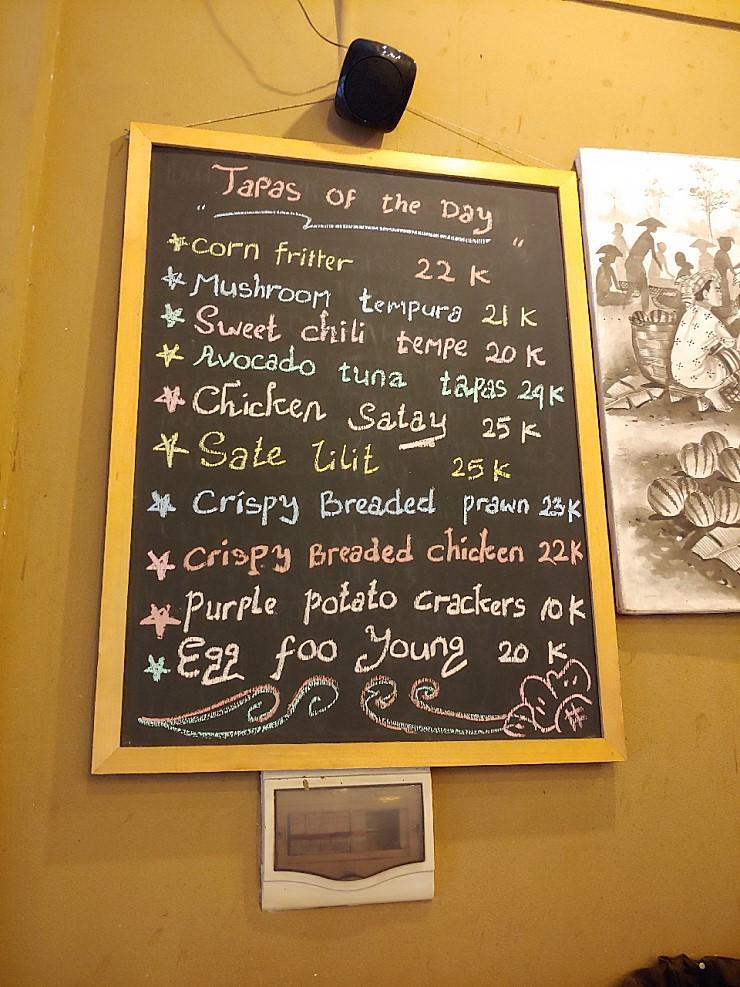 Tapas of the Day
" "
corn fritter 22 K
Mushroom tempura 21 K
Sweet chili tempe 20 K
Avocado tuna tapas 24K
Chicken Satay 25 K
Sate lilit 25 K
Crispy Breaded prawn 23K
Crispy Breaded chicken 22K
Purple potato crackers 10 K
Egg foo Young 20 K